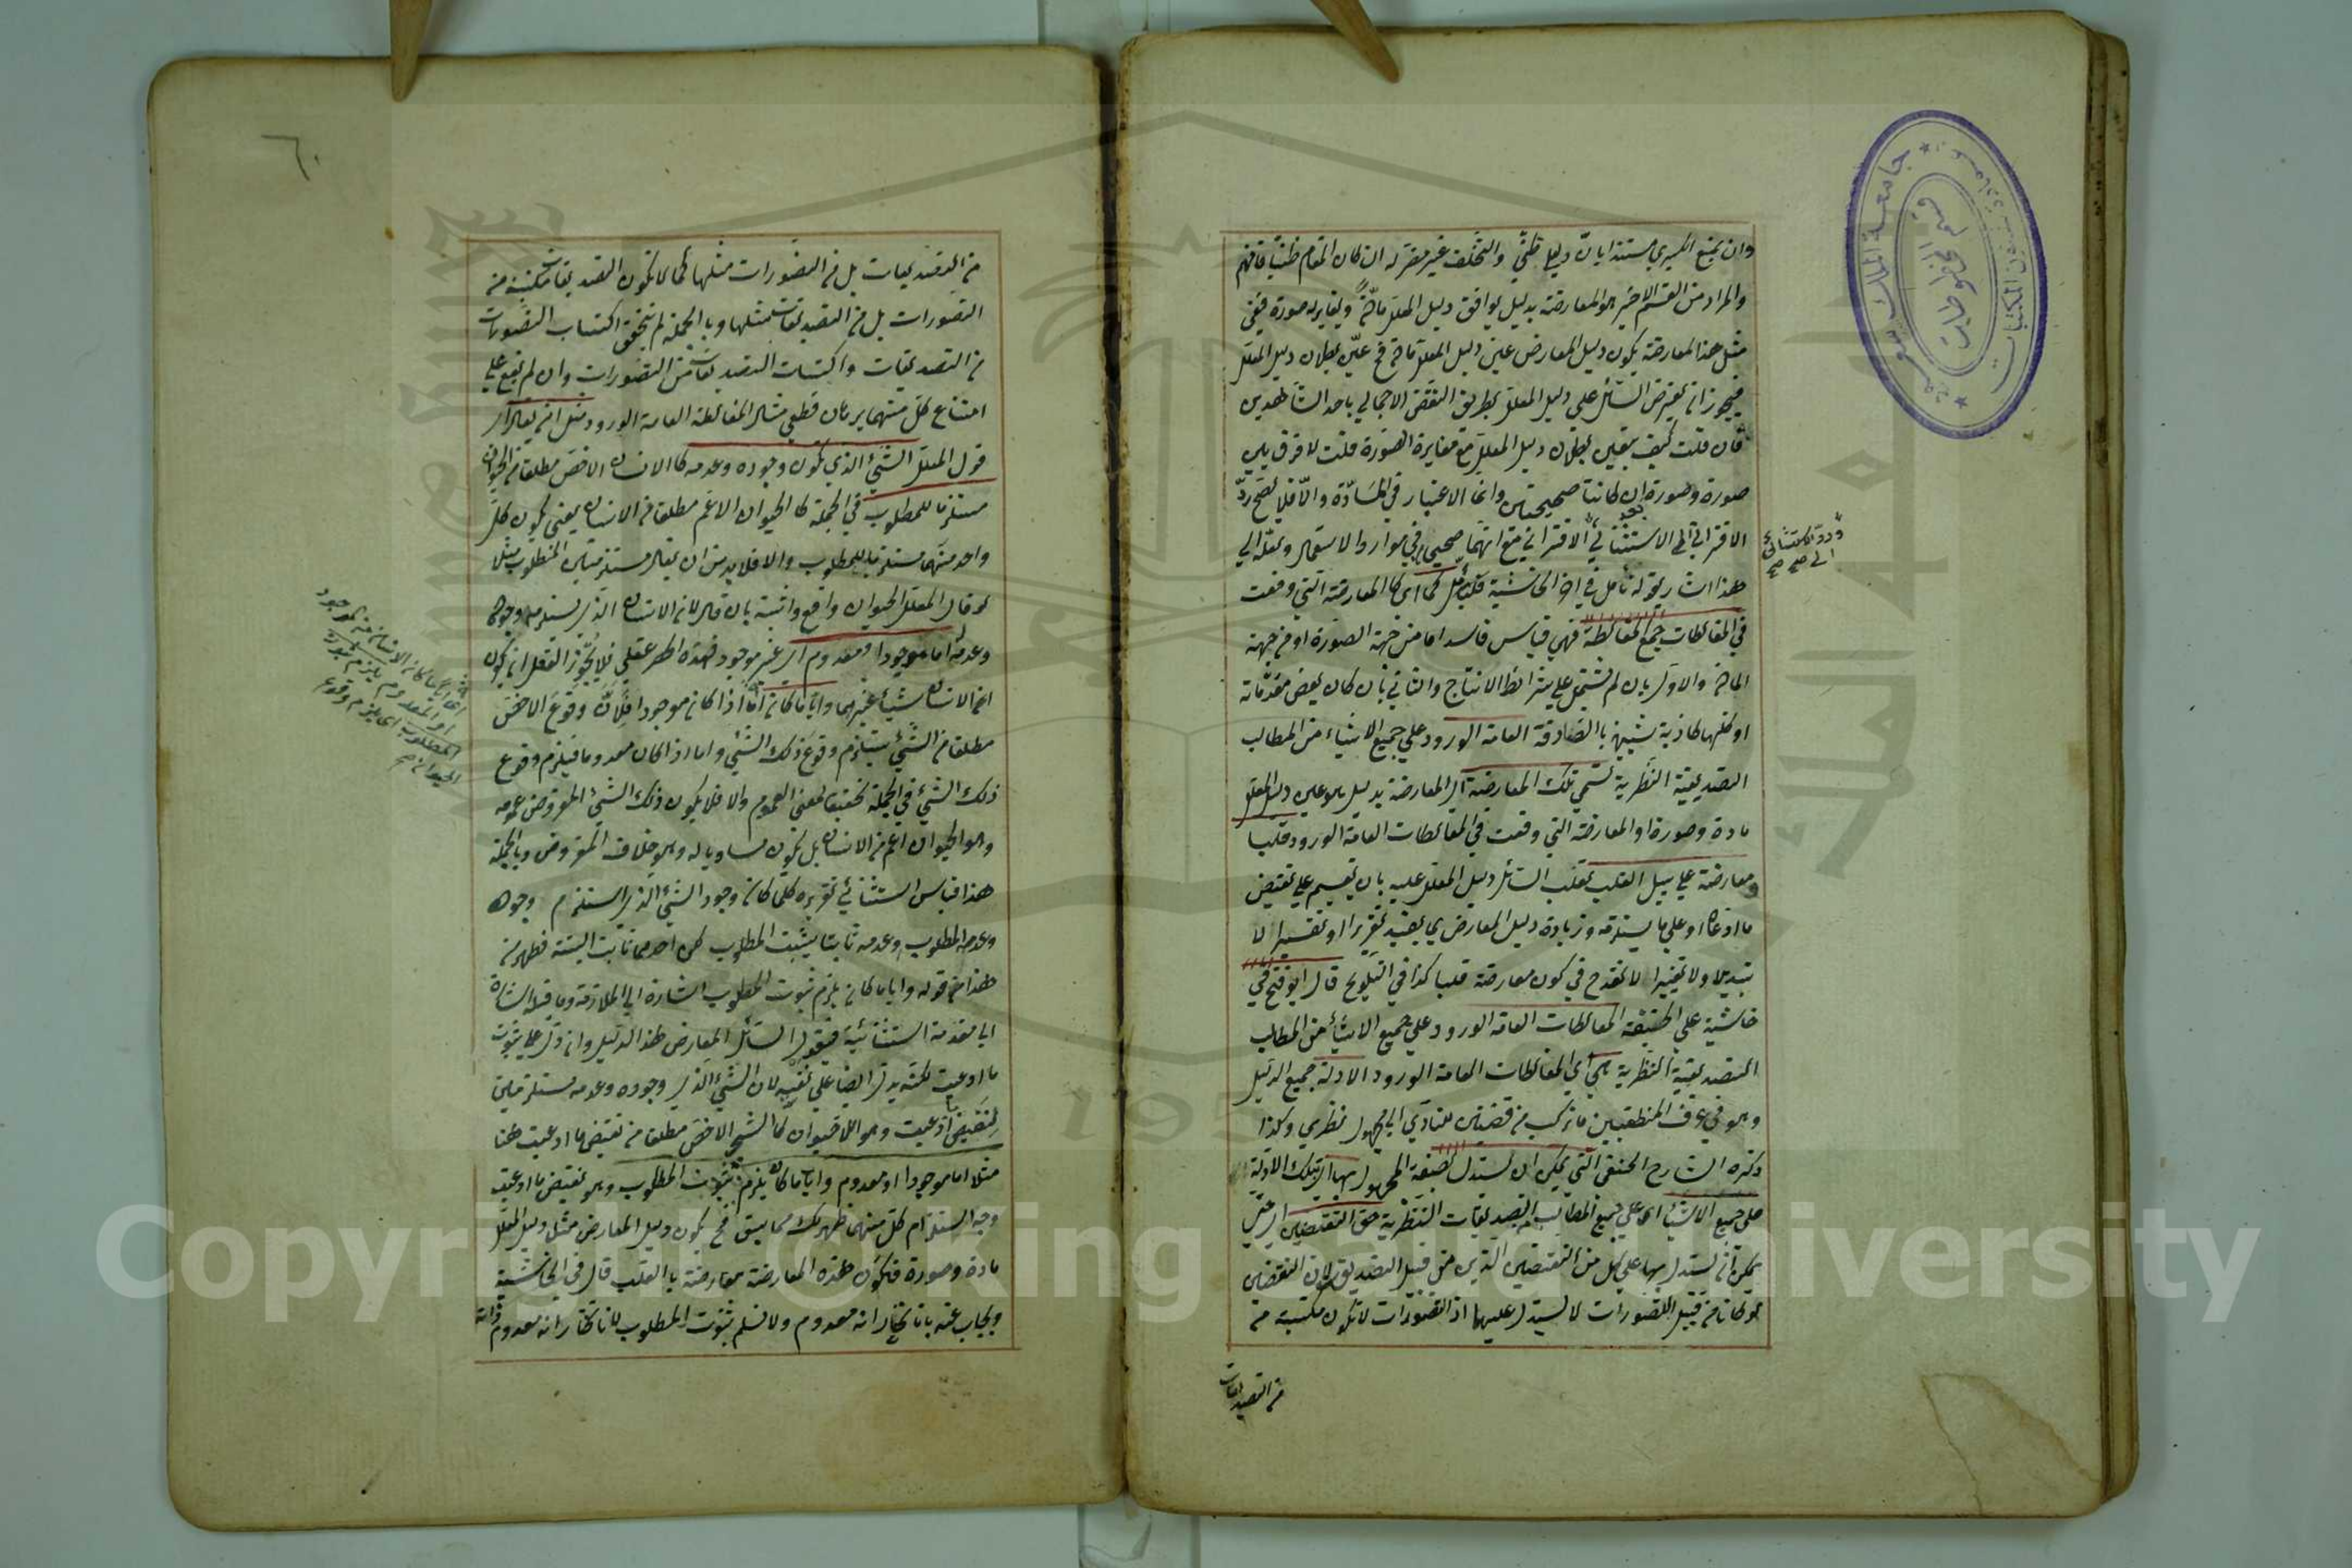 وان يمنع الكبرى مستندا بان دليلي ظني والتخلف غير مضر له ان كان المقام ظنيا فافهم
والمراد من القسم الاخير هو المعارضة بدليل يوافق دليل المعلل مادة ويغايره صورة ففي
مثل هذا المعارضة يكون دليل المعارض عين دليل المعلل مادة فح عين بطلان دليل المعلل
فيجوز ان يعترض السائل على دليل المعلل بطريق النقض الاجمالي باحد الشاهدين
فان قلت كيف يتعين بطلان دليل المعلل مع مغايرة الصورة قلت لا فرق بين
صورة وصورة ان كانتا صحيحتين وانما الاعتبار في المادة والا فلا يصح رد
الاقتراني الى الاستثنائي الاقتراني مع انهما صحيح في موارد الاستعمال ولعله الى
هذا اشار بقوله تأمل في اخر الحاشية كما اى كالمعارضة التي وقعت
في المغالطات جمع المغالطة فهي قياس فاسد اما من جهة الصورة او من جهة
المادة والاول بان لم تشتمل على شرائط الانتاج والثاني بان كان بعض مقدماته
او كلها كاذبة شبيهة بالصادقة العامة الورود على جميع الاشياء من المطالب
التصديقية النظرية تسمى تلك المعارضة اى المعارضة بدليل هو عين دليل المعلل
مادة وصورة او المعارضة التي وقعت في المغالطات العامة الورود قلبا
ومعارضة على سبيل القلب لقلب السائل دليل المعلل عليه بان يقيم على نقيض
ما ادعاه او على ما يستلزمه وزيادة دليل المعارض بما يفيد تقريرا او تفسيرا لا
تبديلا ولا تغييرا لا تقدح في كون معارضة قلبا كذا في التلويح قال ابو فتح في
حاشية على الحنفية المغالطات العامة الورود على جميع الاشياء من المطالب
التصديقية النظرية هي اى المغالطات العامة الورود الادلة جميع الدليل
وهو في عرف المنطقيين ما تركب من قضيتين للتأدي الى مجهول نظري وكذا
ذكره الشارح الحنفي التي يمكن ان يستدل بصيغة المجهول بها اى بتلك الادلة
على جميع الاشياء اى على جميع المطالب التصديقات النظرية حتى النقيضين اى حتى
يمكن ان يستدل بها على كل من النقيضين الذين من قبيل التصديق لان النقيضين
لو كانا من قبيل التصورات لا يستدل عليهما اذ التصورات لا تكون مكتسبة من
من التصديقات
ورد الاستثنائي
الى صح صح
جامعة الملك سعود
قسم المخطوطات
٦٠
من التصديقات بل من التصورات مثلها كما لا يكون التصديقات مكتسبة من
التصورات بل من التصديقات مثلها وبالجملة لم يتحقق اكتساب التصورات
من التصديقات واكتساب التصديقات من التصورات وان لم يقع على
امتناع كل منهما برهان قطعي مثال المغالطة العامة الورود مثل ان يقال اى
قول المعلل الشئ الذي يكون وجوده وعدمه كالانسان الاخص مطلقا من الحيوان
مستلزما للمطلوب في الجملة كالحيوان الاعم مطلقا من الانسان يعني يكون كل
واحد منهما مستلزما للمطلوب والا فلا بد من ان يقال مستلزمين المطلوب مثلا
لو قال المعلل الحيوان واقع واثبته بان قال لان الانسان الذي يستلزم وجوده
وعدمه اما موجود او معدوم اى غير موجود فهذا الحصر عقلي فلا يجوز العقل ان يكون
الانسان شيئا غيرهما وايا ما كان اما اذا كان موجودا فلان وقوع الاخص
مطلقا من الشئ يستلزم وقوع ذلك الشئ واما اذا كان معدوما فيلزم وقوع
ذلك الشئ في الجملة تحقيقا لمعنى العموم والا فلا يكون ذلك الشئ المفروض عمومه
وهو الحيوان اعم من الانسان بل يكون مساويا له وهو خلاف المفروض وبالجملة
هذا قياس استثنائي تقريره كلما كان وجود الشئ الذي استلزم وجوده
وعدمه المطلوب وعدمه ثابتا يثبت المطلوب لكن احدهما ثابت البتة فظهر من
هذا ان قوله وايا ما كان يلزم ثبوت المطلوب اشارة الى الملازمة وما قبله اشارة
الى مقدمة استثنائية فيقول السائل المعارض هذا الدليل وان دل على ثبوت
ما ادعيت لكنه يدل ايضا على نفيه لان الشئ الذي وجوده وعدمه مستلزمين
لنقيض ما ادعيت وهو اللاحيوان كالشئ الاخص مطلقا من نقيض ما ادعيت هنا
مثلا اما موجودا او معدوم وايا ما كان يلزم ثبوت المطلوب وهو نقيض ما ادعيت
وجه استلزام كل منهما ظهر لك مما سبق فح يكون دليل المعارض مثل دليل المعلل
مادة وصورة فتكون هذه المعارضة معارضة بالقلب قال في الحاشية
ويجاب عنه بانا نختار انه معدوم ولا نسلم ثبوت المطلوب لانا نختار انه معدوم
او المعدوم يلزم ثبوت
المطلوب اى يلزم وقوع
الحيوان صح
Copyright © King Saud University
1957